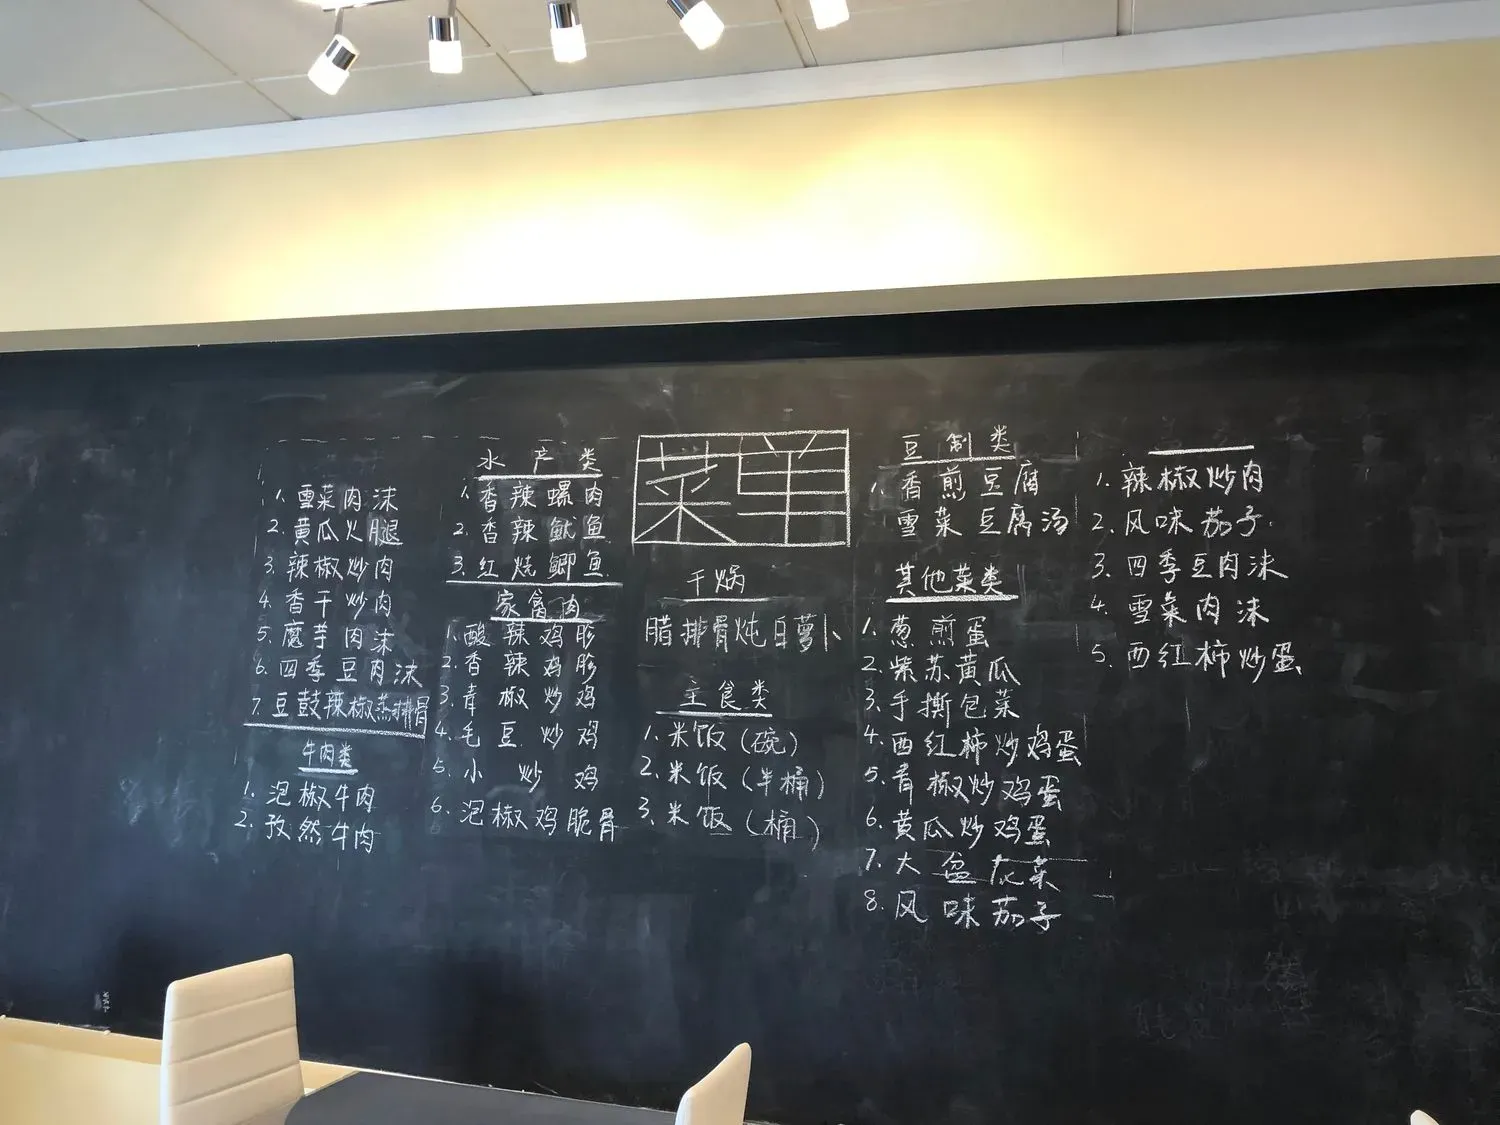 菜单
1. 雪菜肉沫
2. 黄瓜火腿
3. 辣椒炒肉
4. 香干炒肉
5. 魔芋肉沫
6. 四季豆肉沫
7. 豆鼓辣椒蒸排骨
牛肉类
1. 泡椒牛肉
2. 孜然牛肉
水产类
1. 香辣螺肉
2. 香辣鱿鱼
3. 红烧鲫鱼
家禽肉
1. 酸辣鸡胗
2. 香辣鸡胗
3. 青椒炒鸡
4. 毛豆炒鸡
5. 小炒鸡
6. 泡椒鸡脆骨
干焖
腊排骨炖白萝卜
主食类
1. 米饭(碗)
2. 米饭(半桶)
3. 米饭(桶)
豆制类
1. 香煎豆腐
雪菜豆腐汤
其他菜类
1. 葱煎蛋
2. 紫苏黄瓜
3. 手撕包菜
4. 西红柿炒鸡蛋
5. 青椒炒鸡蛋
6. 黄瓜炒鸡蛋
7. 大盆花菜
8. 风味茄子
1. 辣椒炒肉
2. 风味茄子
3. 四季豆肉沫
4. 雪菜肉沫
5. 西红柿炒蛋